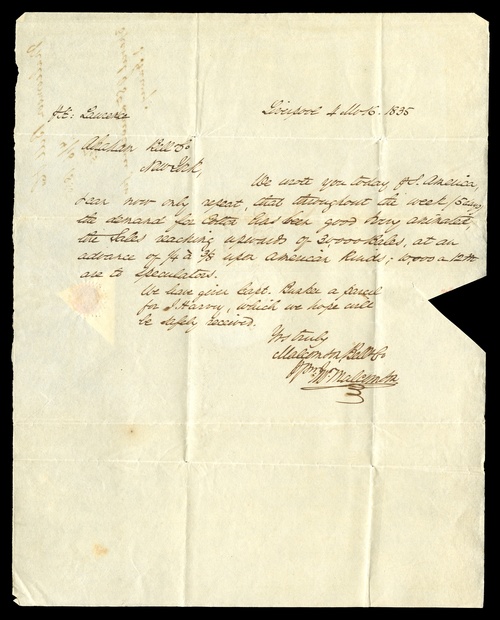 Liverpool 4 Mo 16. 1835
Abraham Bell & Co
New York,
We wrote you today, America,
now only repeat, that throughout the week
the demand for Cotton has been good & very animated,
the Sales reaching upwards of 30,000 Bales, at an
advance of 1/4 a 3/8 upon American kinds; 10,000 a 12
are to speculators.
We have given Capt. a parcel
for J. Harvey, which we hope will
be safely received.
Yrs truly
Malcomson, Bell & Co
Malcomson